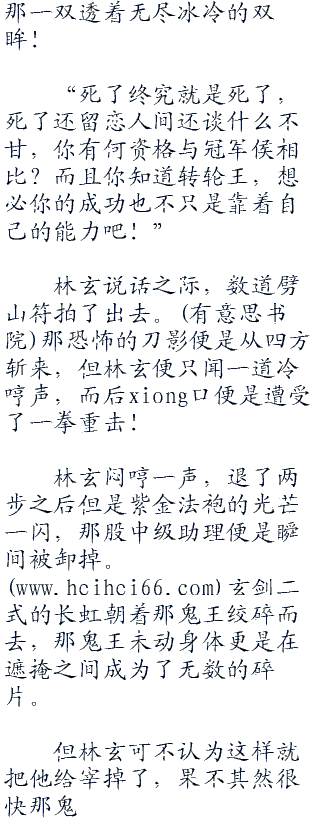 那一双透着无尽冰冷的双
眸！
“死了终究就是死了，
死了还留恋人间还谈什么不
甘，你有何资格与冠军侯相
比？而且你知道转轮王，想
必你的成功也不只是靠着自
己的能力吧！”
林玄说话之际，数道劈
山符拍了出去。(有意思书
院)那恐怖的刀影便是从四方
斩来，但林玄便只闻一道冷
哼声，而后xiong口便是遭受
了一拳重击！
林玄闷哼一声，退了两
步之后但是紫金法袍的光芒
一闪，那股中级助理便是瞬
间被卸掉。
(www.hcihci66.com)玄剑二
式的长虹朝着那鬼王绞碎而
去，那鬼王未动身体更是在
遮掩之间成为了无数的碎
片。
但林玄可不认为这样就
把他给宰掉了，果不其然很
快那鬼